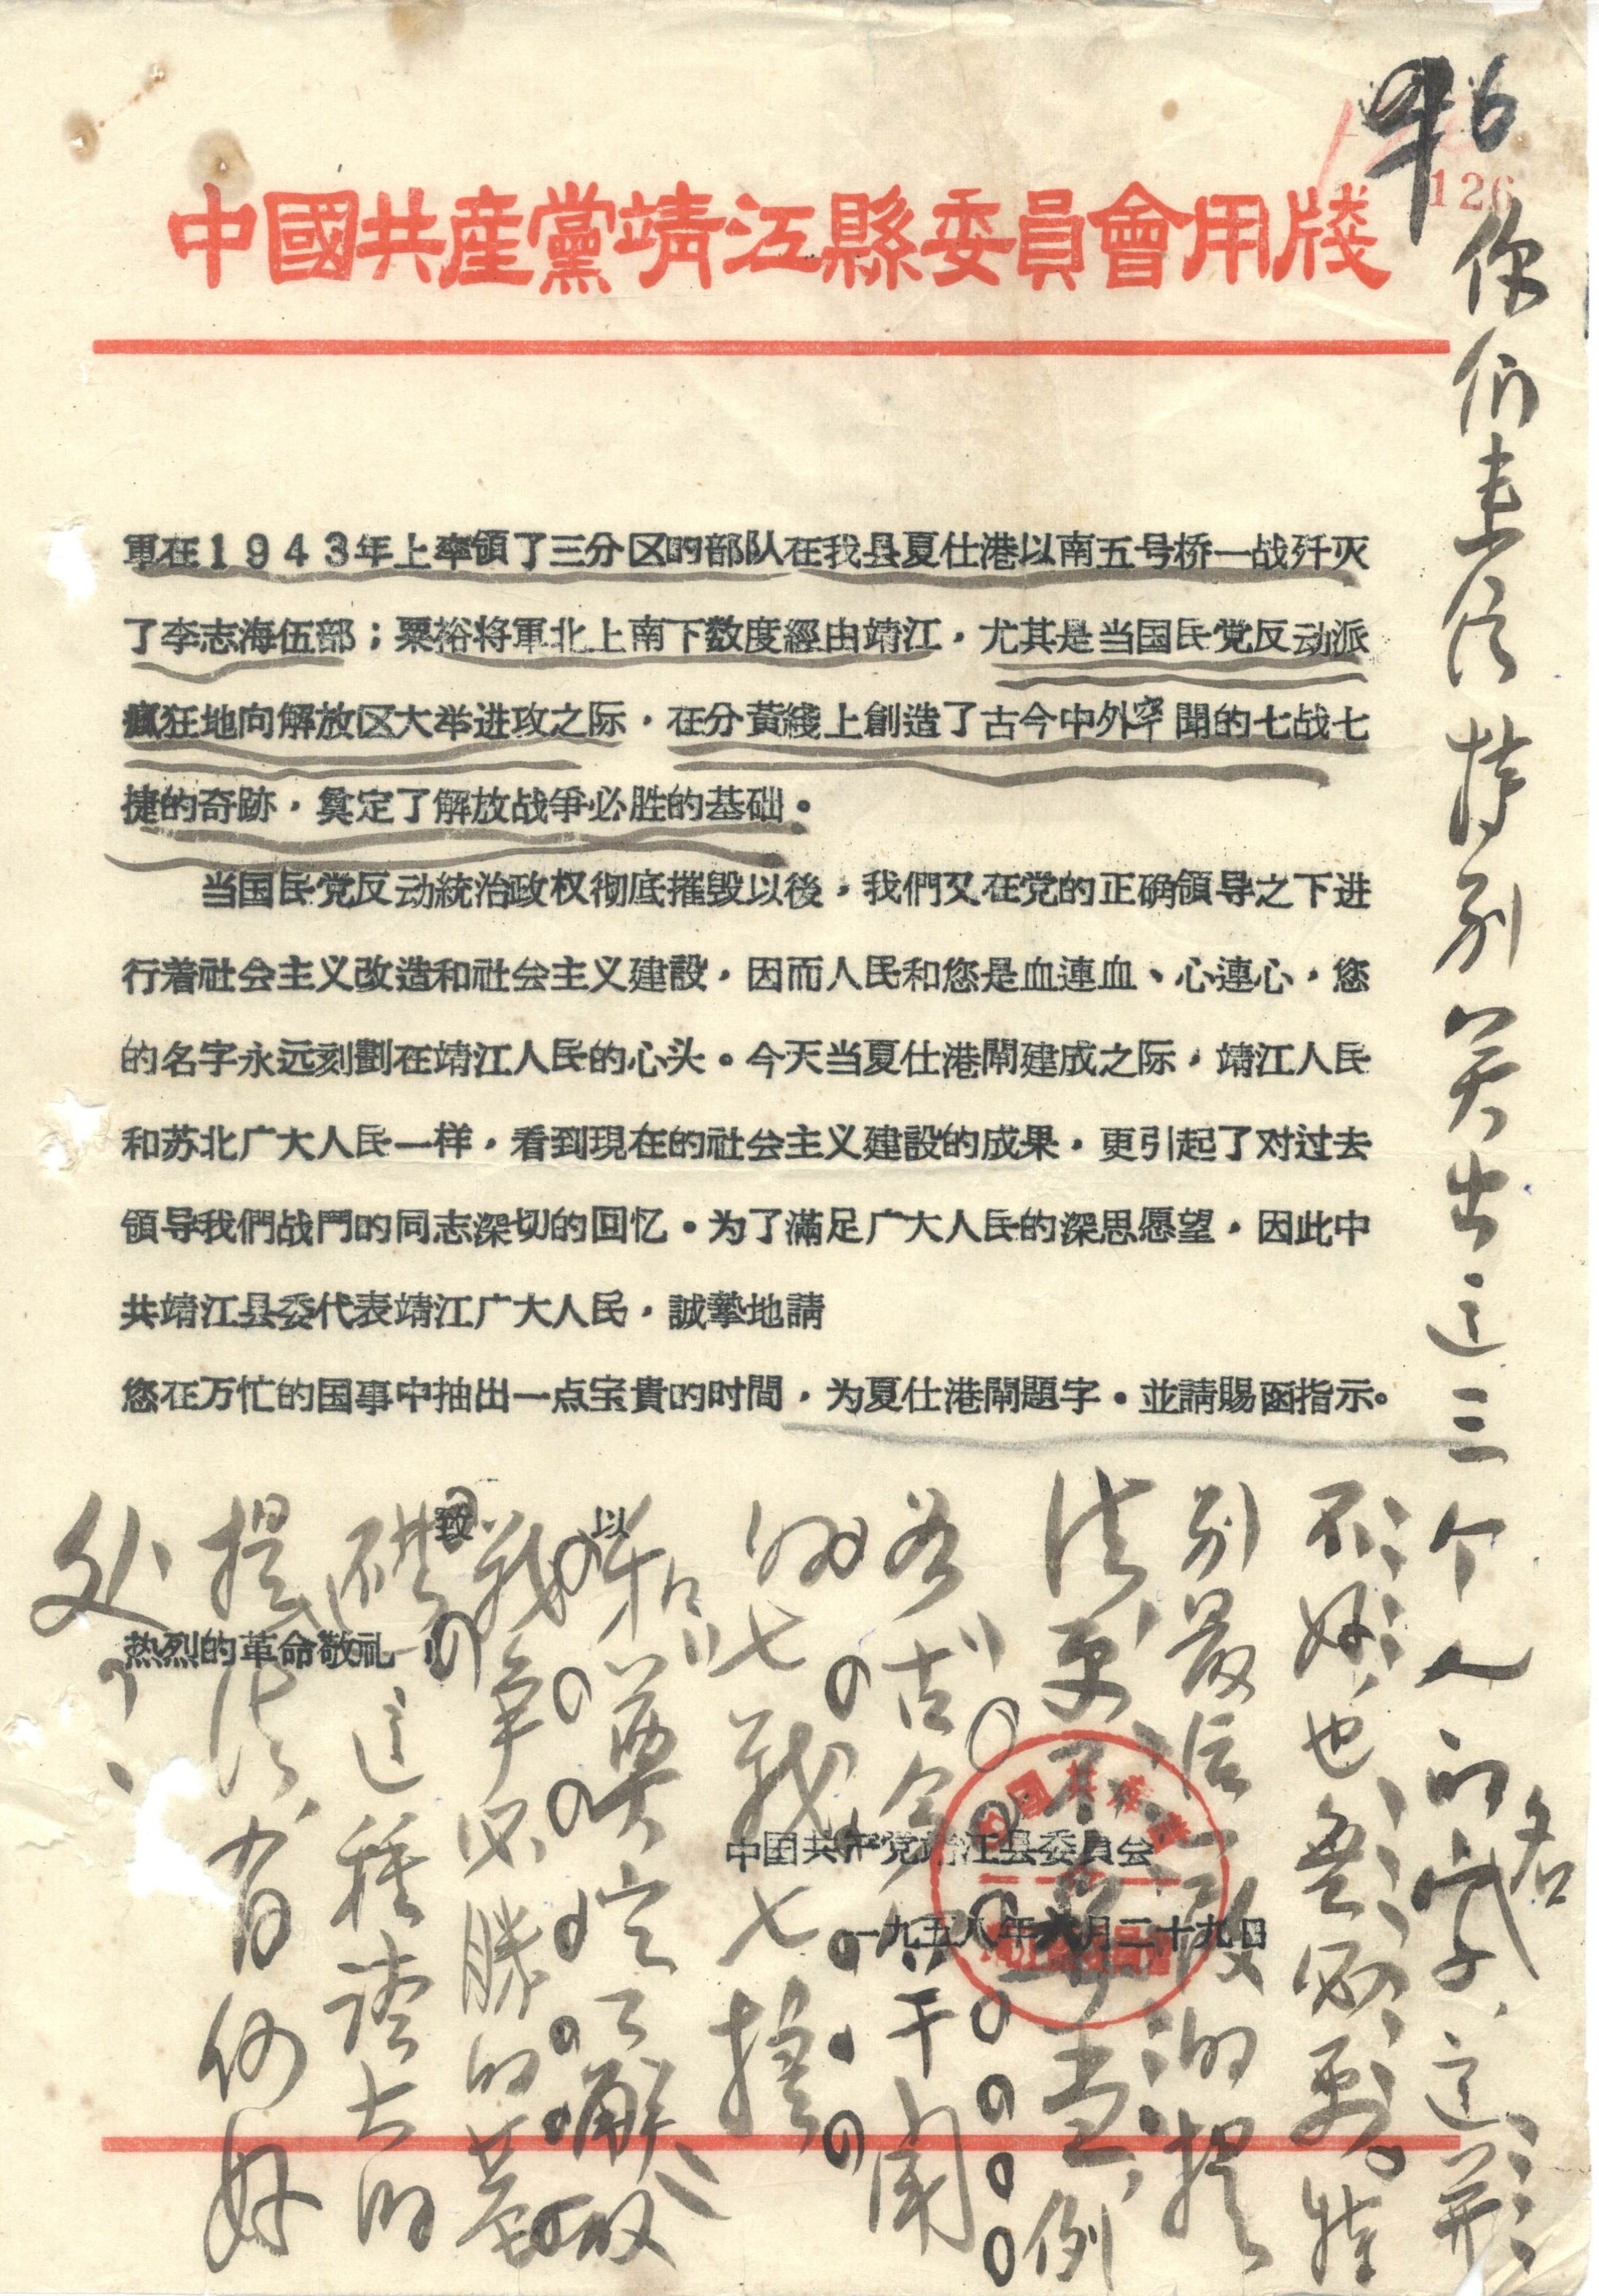 46
126
中國共産黨靖江縣委員會用牋
軍在1943年上率領了三分区的部队在我县夏仕港以南五号桥一战歼灭
了李志海伍部；粟裕将軍北上南下数度經由靖江，尤其是当国民党反动派
瘋狂地向解放区大举进攻之际，在分黃綫上創造了古今中外罕聞的七战七
捷的奇跡，奠定了解放战争必胜的基础。
当国民党反动統治政权彻底摧毁以後，我們又在党的正确領导之下进
行着社会主义改造和社会主义建設，因而人民和您是血連血、心連心，您
的名字永远刻劃在靖江人民的心头。今天当夏仕港閘建成之际，靖江人民
和苏北广大人民一样，看到現在的社会主义建設的成果，更引起了对过去
領导我們战鬥的同志深切的回忆。为了滿足广大人民的深思愿望，因此中
共靖江县委代表靖江广大人民，誠摯地請
您在万忙的国事中抽出一点宝貴的时間，为夏仕港閘題字。並請賜函指示。
以
致
热烈的革命敬礼
中国共产党靖江县委員会
一九五八年六月二十九日
你们来信特别关出这三个人的名字，这形
不好，也无必要。特
别最后一段的提
法更不妥当，例
如古今中外罕闻
的七战七捷
和奠定了解放
战争必胜的基
础，这种夸大的
提法，有何好
处？